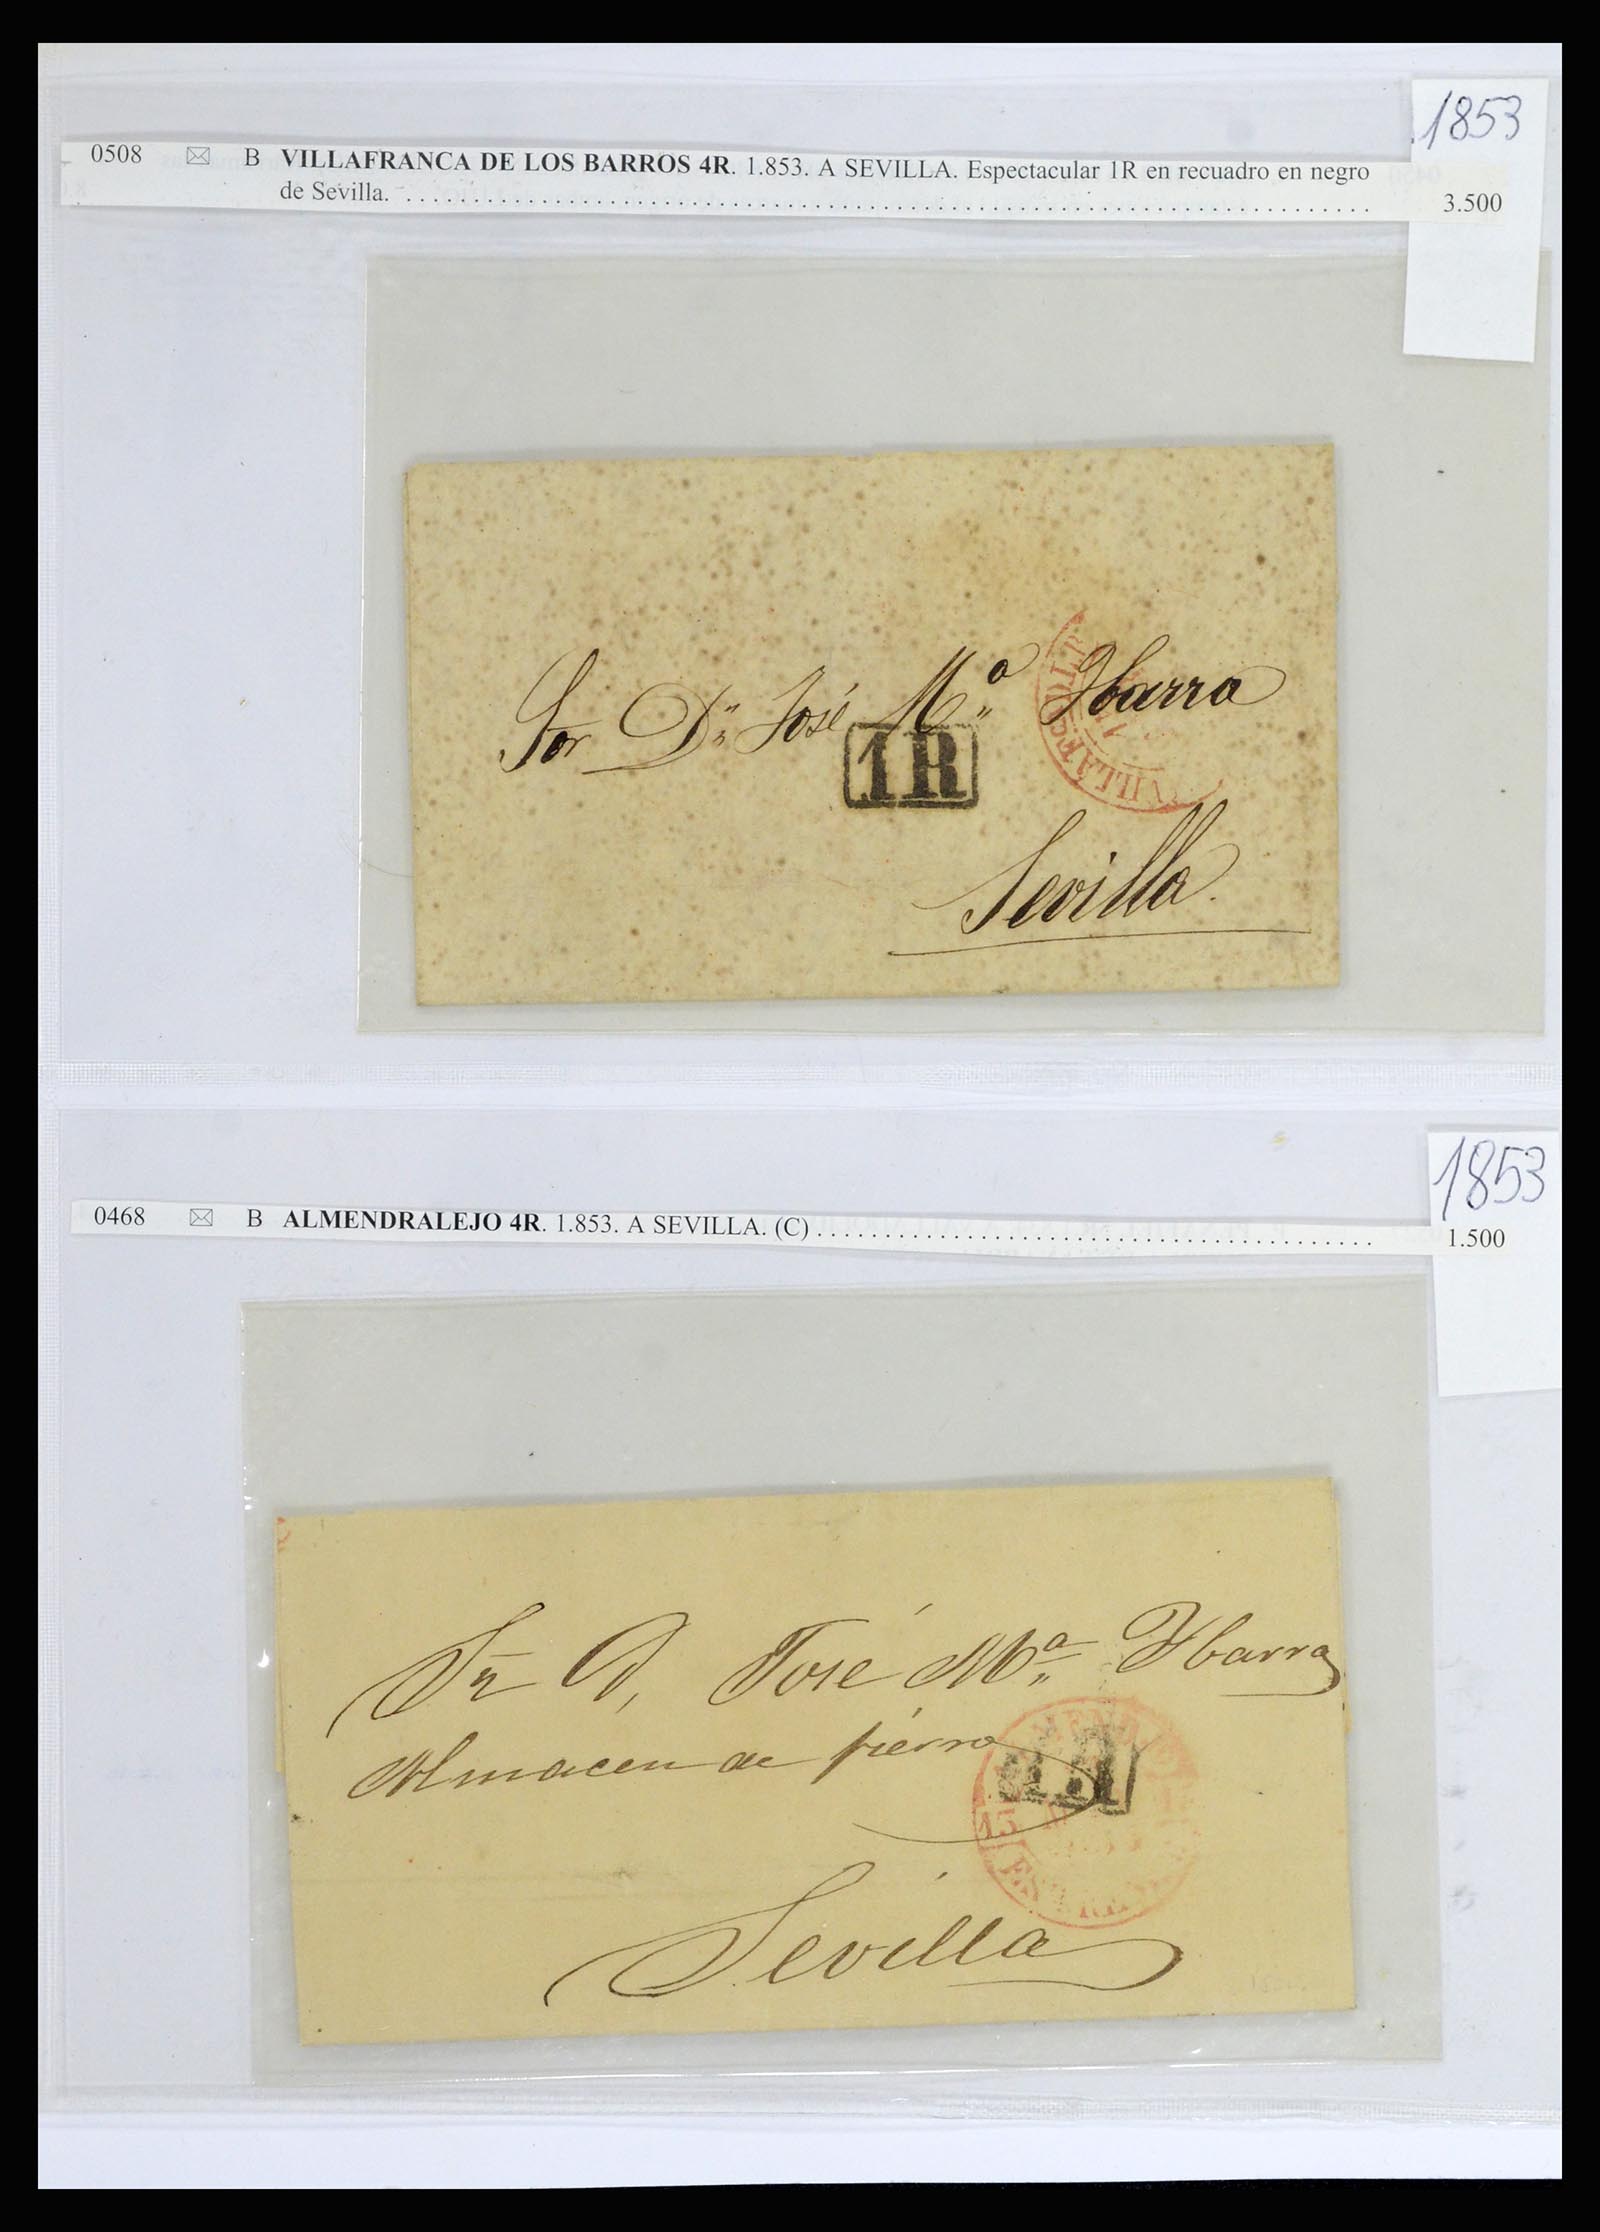 1853
0508 B VILLAFRANCA DE LOS BARROS 4R. 1.853. A SEVILLA. Espectacular 1R en recuadro en negro
de Sevilla. 3.500
Sor Dn José Ma Ibarra
1R
VILLAFCA
Sevilla.
1853
0468 B ALMENDRALEJO 4R. 1.853. A SEVILLA. (C) 1.500
Sr D, José Ma Ybarra
Almacen de fierro
1R
13
Sevilla